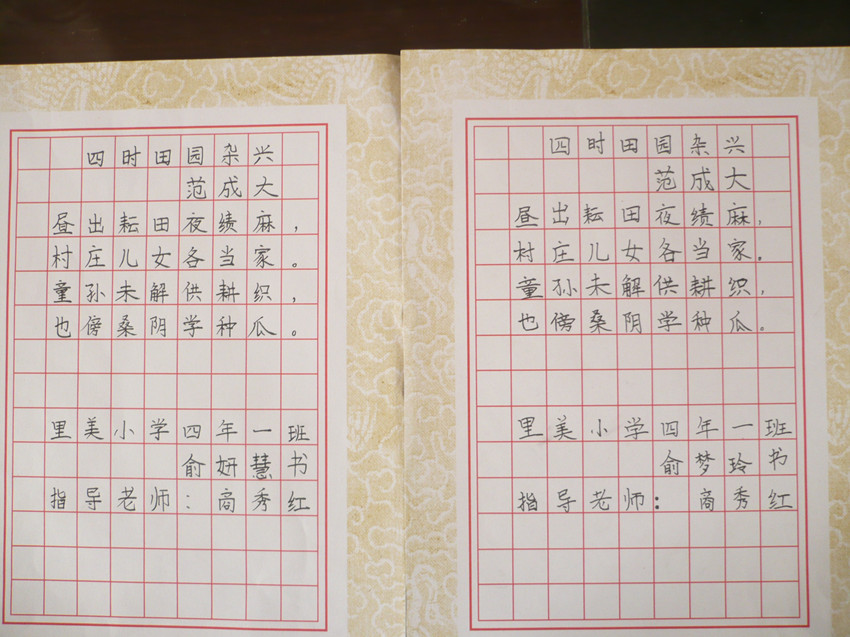 四时田园杂兴
范成大
昼出耘田夜绩麻，
村庄儿女各当家。
童孙未解供耕织，
也傍桑阴学种瓜。
里美小学四年一班
俞妍慧书
指导老师：高秀红
四时田园杂兴
范成大
昼出耘田夜绩麻，
村庄儿女各当家。
童孙未解供耕织，
也傍桑阴学种瓜。
里美小学四年一班
俞梦玲书
指导老师：高秀红